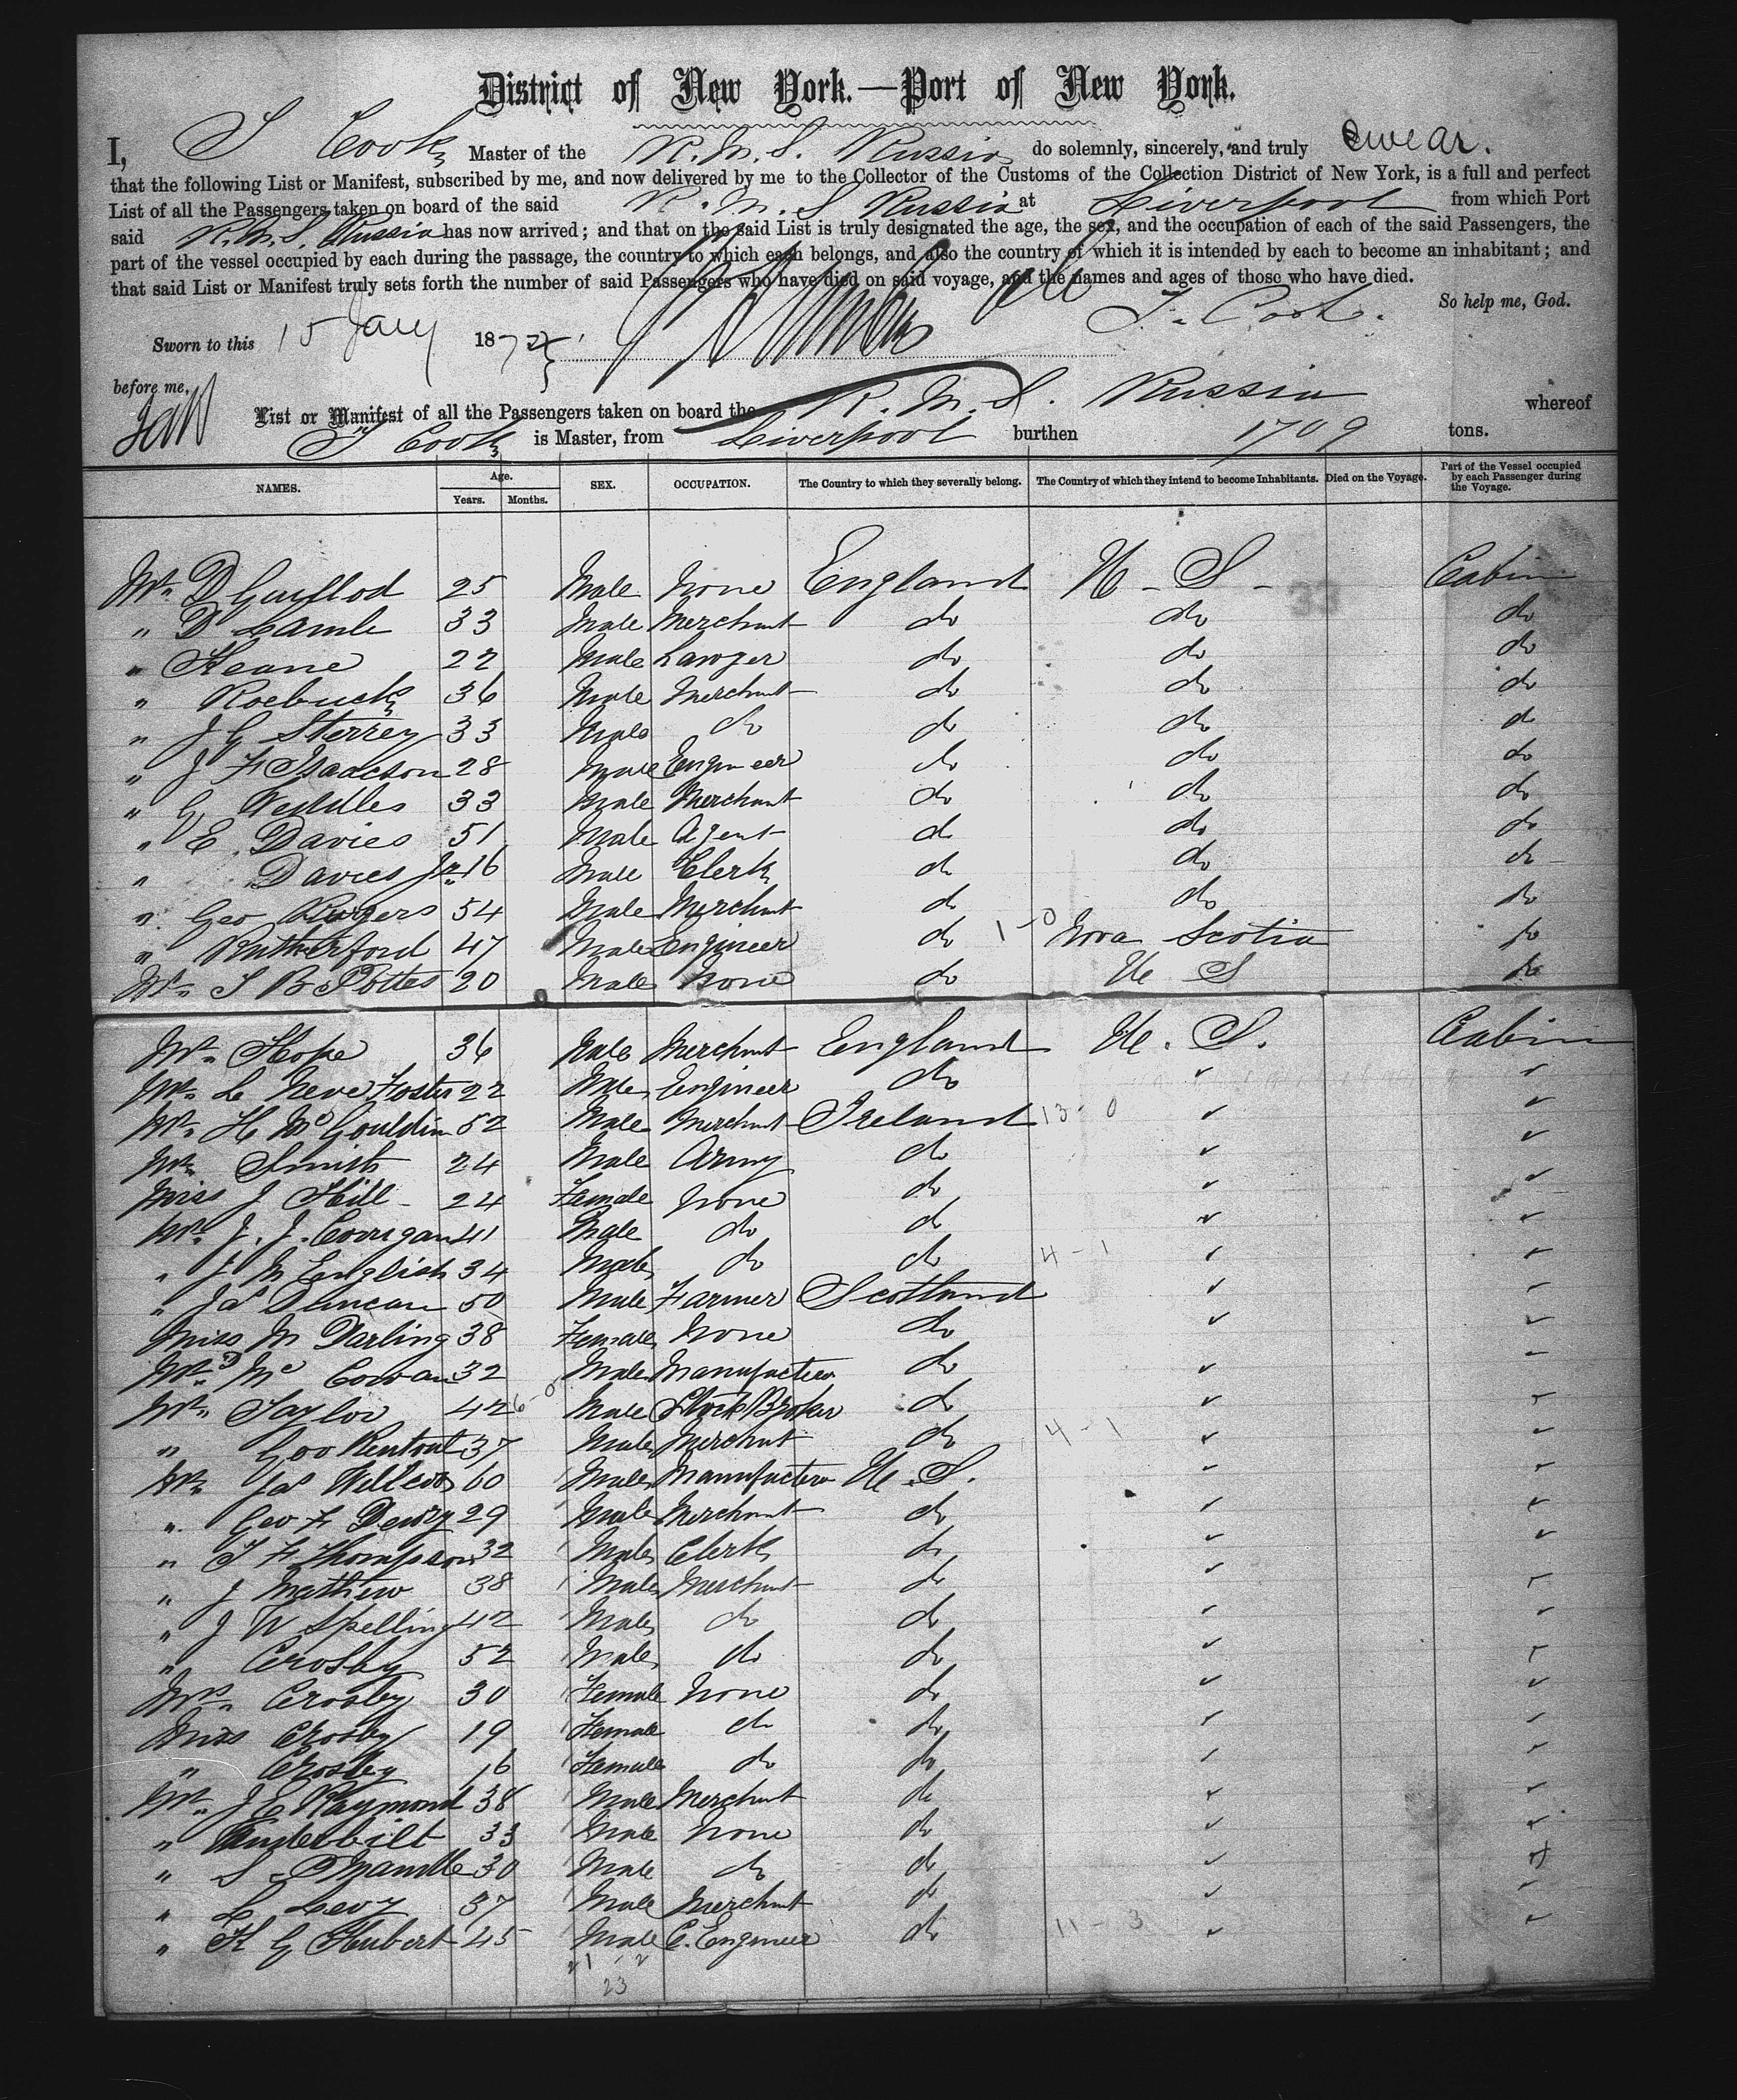 District of New York.—Port of New York.
I, T Cook Master of the R.M.S. Russia do solemnly, sincerely, and truly swear.
that the following List or Manifest, subscribed by me, and now delivered by me to the Collector of the Customs of the Collection District of New York, is a full and perfect
List of all the Passengers taken on board of the said R.M.S Russia at Liverpool from which Port
said R.M.S. Russia has now arrived; and that on the said List is truly designated the age, the sex, and the occupation of each of the said Passengers, the
part of the vessel occupied by each during the passage, the country to which each belongs, and also the country of which it is intended by each to become an inhabitant; and
that said List or Manifest truly sets forth the number of said Passengers who have died on said voyage, and the names and ages of those who have died.
So help me, God.
T. Cook.
Sworn to this 15 Jany 187
before me,
List or Manifest of all the Passengers taken on board the R.M.S. Russia whereof
T Cook is Master, from Liverpool burthen 1709 tons.
NAMES. Age. Years. Months. SEX. OCCUPATION. The Country to which they severally belong. The Country of which they intend to become Inhabitants. Died on the Voyage. Part of the Vessel occupied by each Passenger during the Voyage.
Mr. D 25 Male None England U-S- 33 Cabin
" D Lamb 33 Male Merchant do do do
" Keane 22 Male Lawyer do do do
" Roebuck 36 Male Merchant do do do
" J G Sterrey 33 Male do do do do
" J F Isaacson 28 Male Engineer do do do
" G 33 Male Merchant do do do
" E. Davies 51 Male Agent do do do
" Davies Jr 16 Male Clerk do do do
" Geo Rogers 54 Male Merchant do do do
" Rutherford 47 Male Engineer do 1-0 Nova Scotia do
Mr. S B Pottes 20 Male None do U S do
Mr. Hope 36 Male Merchant England U. S. Cabin
Mr. L Neve Foster 22 Male Engineer do ✓ ✓
Mr. H Mc Gouldin 52 Male Merchant Ireland 13-0 ✓ ✓
Mr. Smith 24 Male Army do ✓ ✓
Miss J Hill 24 Female None do ✓ ✓
Mr. J. J. Corrigan 41 Male do do ✓ ✓
" J M English 34 Male do do 4-1 ✓ ✓
" Jas Duncan 50 Male Farmer Scotland ✓ ✓
Miss M Darling 38 Female None do ✓ ✓
Mr. D Mc Cowan 32 Male Manufacturer do ✓ ✓
Mr. Taylor 42 6-0 Male Stock Broker do ✓ ✓
" Geo 37 Male Merchant do 4-1 ✓ ✓
Mr. Jas 60 Male Manufacturer U.S. ✓ ✓
" Geo F 29 Male Merchant do ✓ ✓
" T F Thompson 32 Male Clerk do ✓ ✓
" J Mathew 38 Male Merchant do ✓ ✓
" J W Spelling 42 Male do do ✓ ✓
" Crosby 52 Male do do ✓ ✓
Mrs. Crosby 30 Female None do ✓ ✓
Miss Crosby 19 Female do do ✓ ✓
" Crosby 16 Female do do ✓ ✓
Mr. J E Raymond 38 Male Merchant do ✓ ✓
" Vanderbilt 33 Male None do ✓ ✓
" S 30 Male do do ✓ ✓
" L Levy 37 Male Merchant do ✓ ✓
" H G Hubert 45 Male C. Engineer do 11-3 ✓ ✓
21 2
23